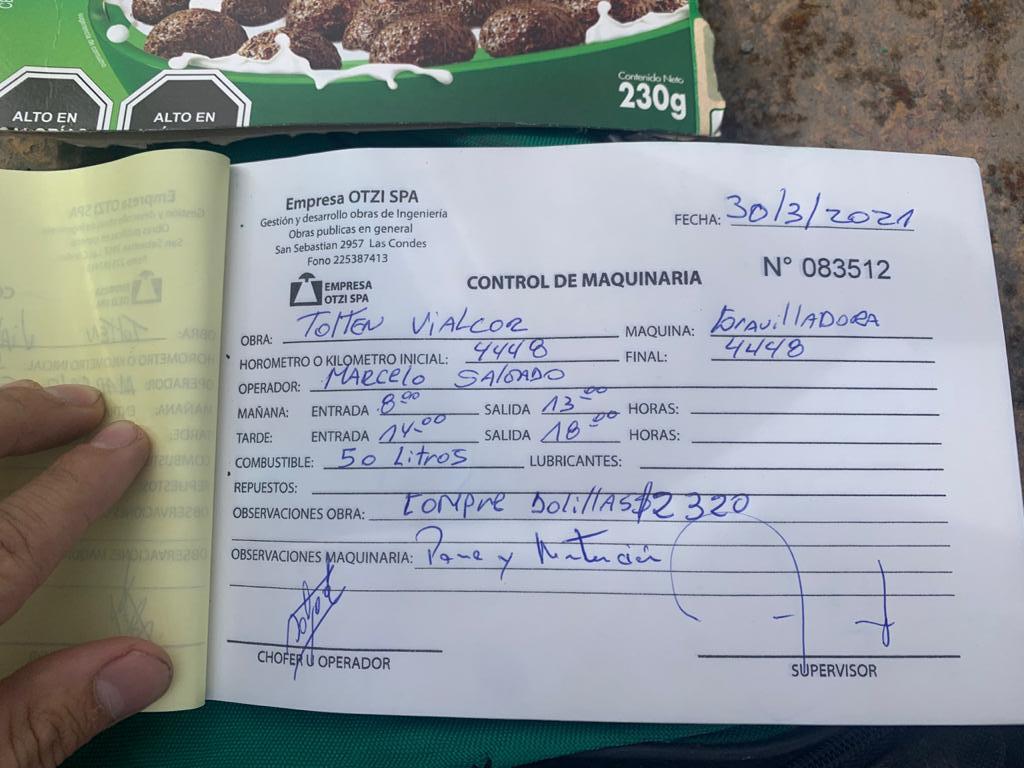 Contenido Neto
230g
ALTO EN
ALTO EN
Empresa OTZI SPA
Gestión y desarrollo obras de Ingeniería
Obras publicas en general
San Sebastian 2957 Las Condes
Fono 225387413
EMPRESA
OTZI SPA
FECHA: 30/3/2021
CONTROL DE MAQUINARIA
N° 083512
OBRA: TOLTEN VIALCOR MAQUINA: GRAVILLADORA
HOROMETRO O KILOMETRO INICIAL: 4448 FINAL: 4448
OPERADOR: MARCELO SALGADO
MAÑANA: ENTRADA 8:00 SALIDA 13:00 HORAS:
TARDE: ENTRADA 14:00 SALIDA 18:00 HORAS:
COMBUSTIBLE: 50 Litros LUBRICANTES:
REPUESTOS:
OBSERVACIONES OBRA: COMPRE bolillAS $2320
OBSERVACIONES MAQUINARIA: Pana y Mantención
CHOFER U OPERADOR
SUPERVISOR